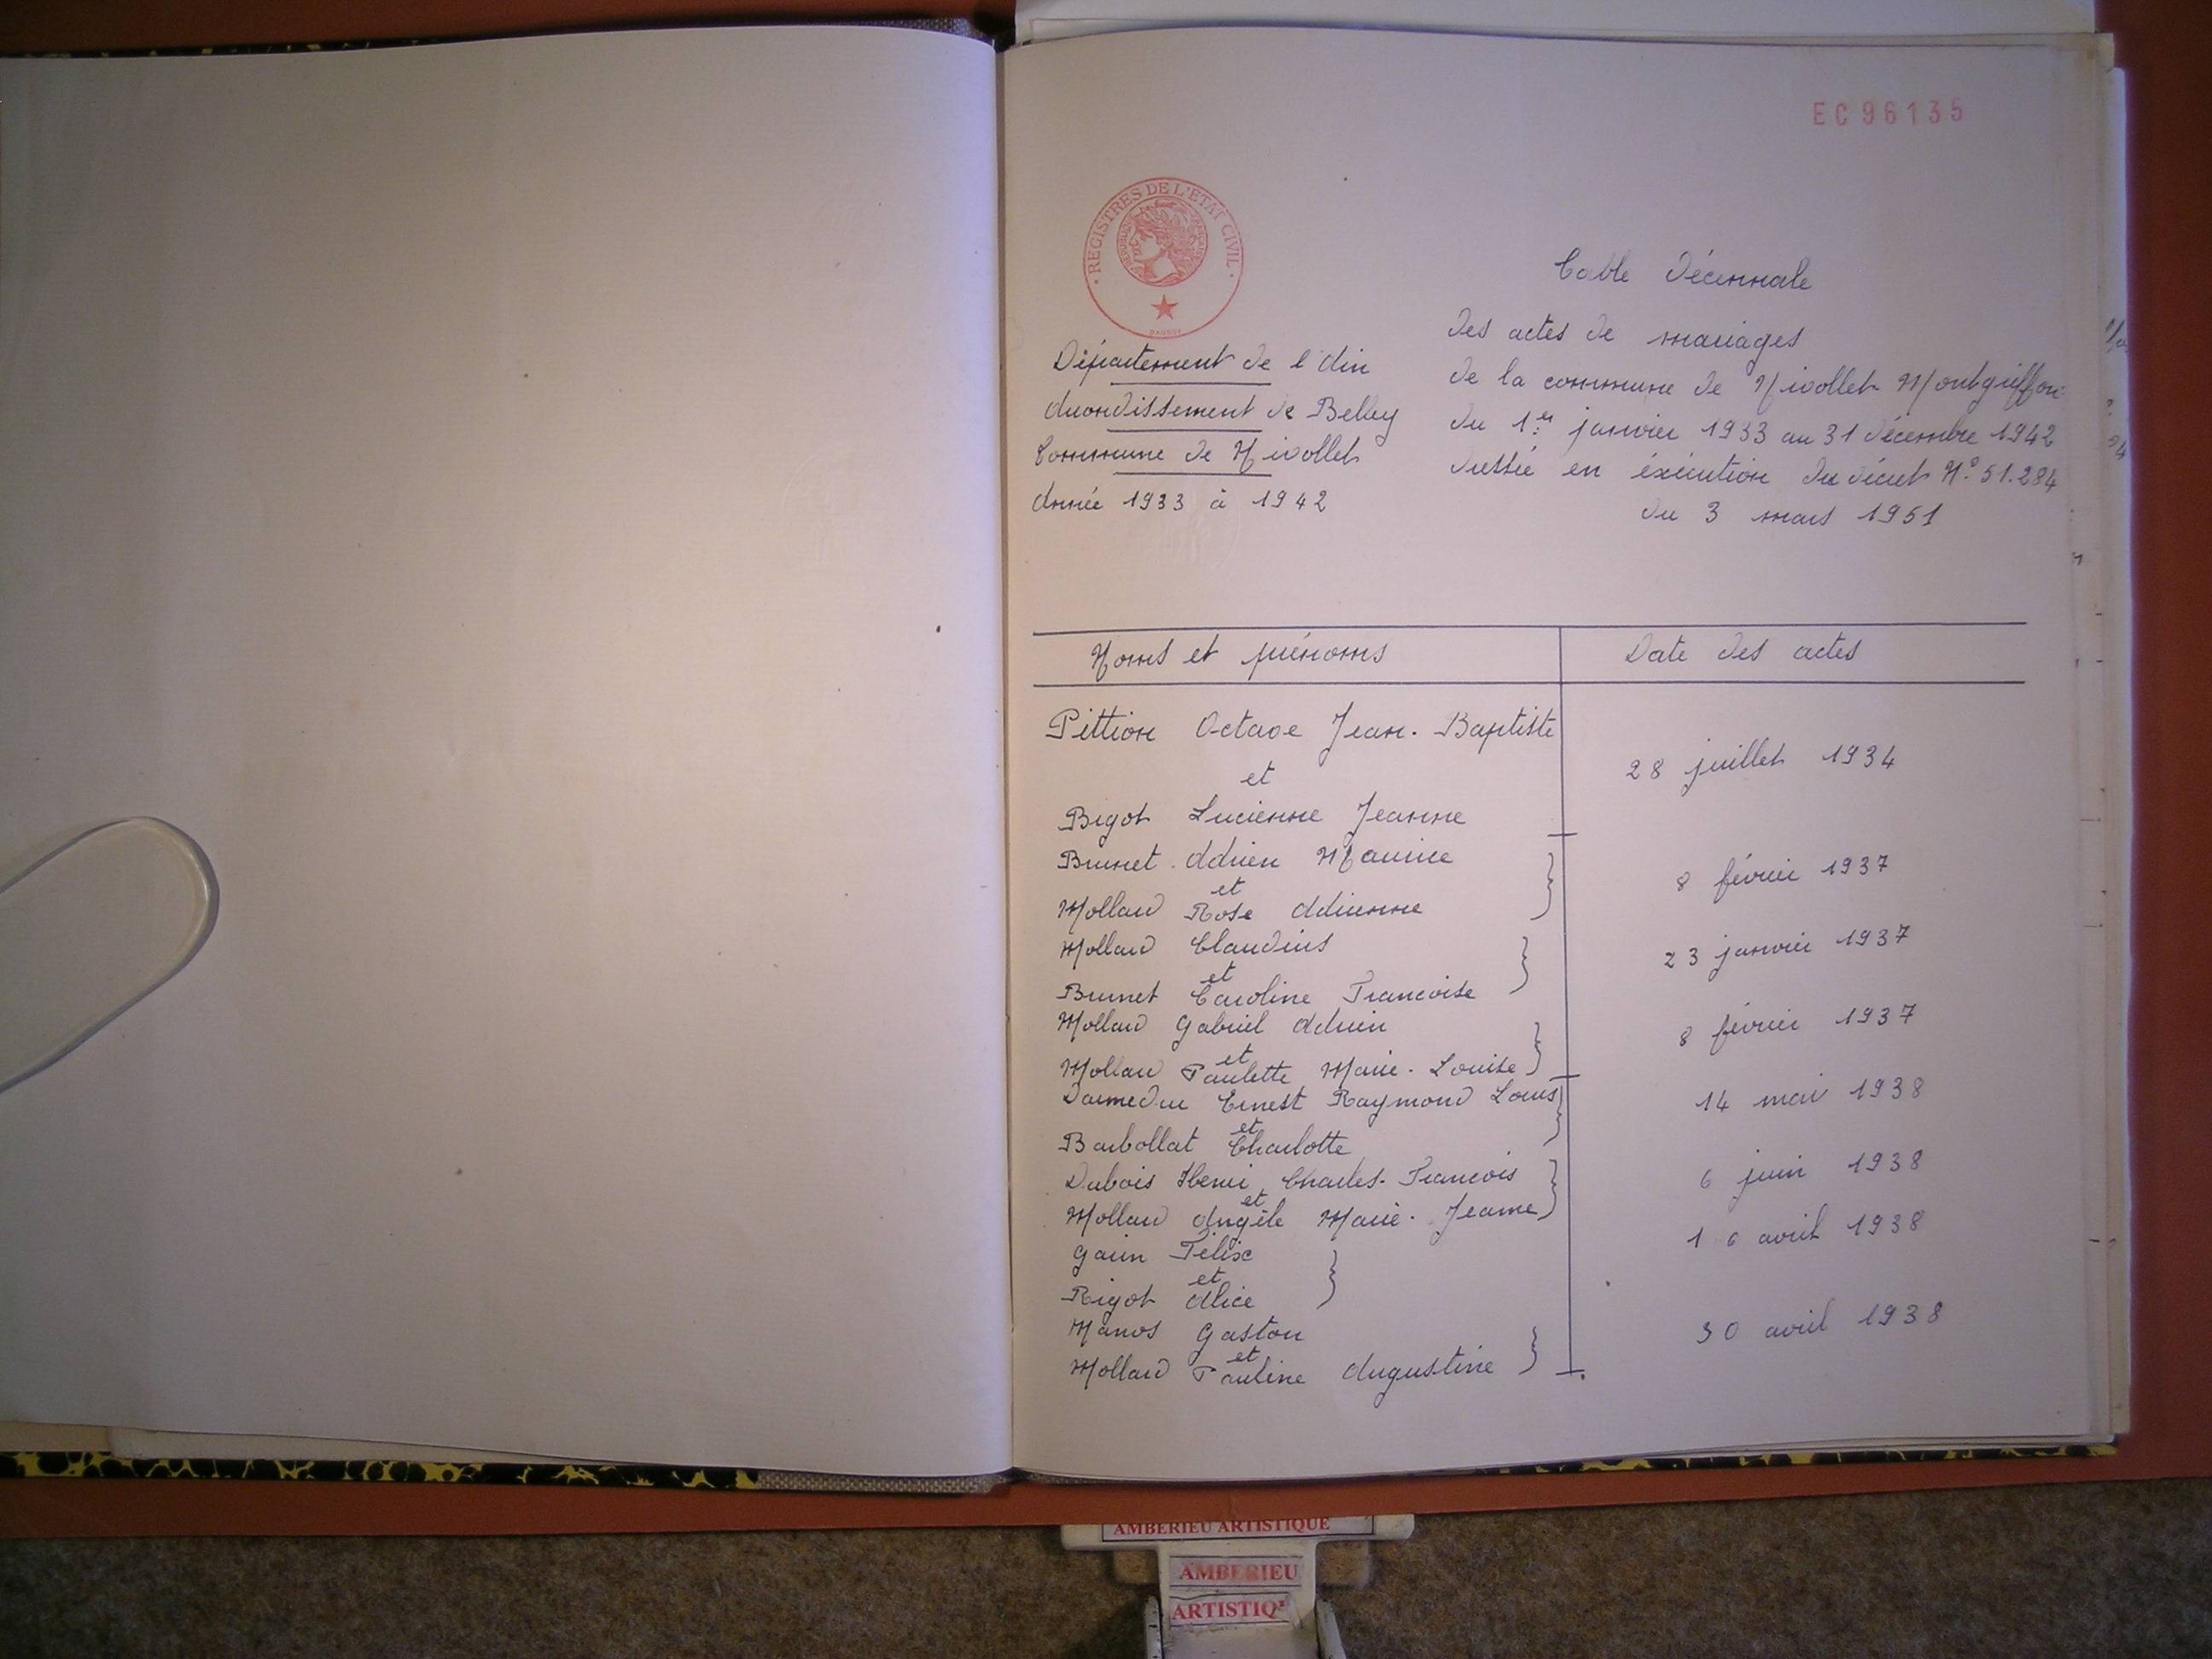 EC96135
REGISTRES DE L'ETAT CIVIL
Table Décennale
des actes de mariages
de la commune de Nivollet Montgriffon
du 1er janvier 1933 au 31 décembre 1942
dressée en éxécution du décret N° 51.284
du 3 mars 1951
Département de l'Ain
Arrondissement de Belley
Commune de Nivollet
Année 1933 à 1942
Noms et prénoms
Date des actes
Pittion Octave Jean-Baptiste
et
28 juillet 1934
Bigot Lucienne Jeanne
Brunet Adrien Maurice
et
8 février 1937
Mollard Rose Adrienne
Mollard Claudius
et
23 janvier 1937
Brunet Caroline Francoise
Mollard Gabriel Adrien
et
8 février 1937
Mollard Paulette Marie-Louise
Darmedru Ernest Raymond Louis
et
14 mai 1938
Barbollat Charlotte
Dubois Henri Charles-Francois
et
6 juin 1938
Mollard Angèle Marie-Jeanne
Garin Félix
et
16 avril 1938
Rigot Alice
Manos Gaston
et
30 avril 1938
Mollard Pauline Augustine
AMBERIEU ARTISTIQUE
AMBERIEU
ARTISTIQ